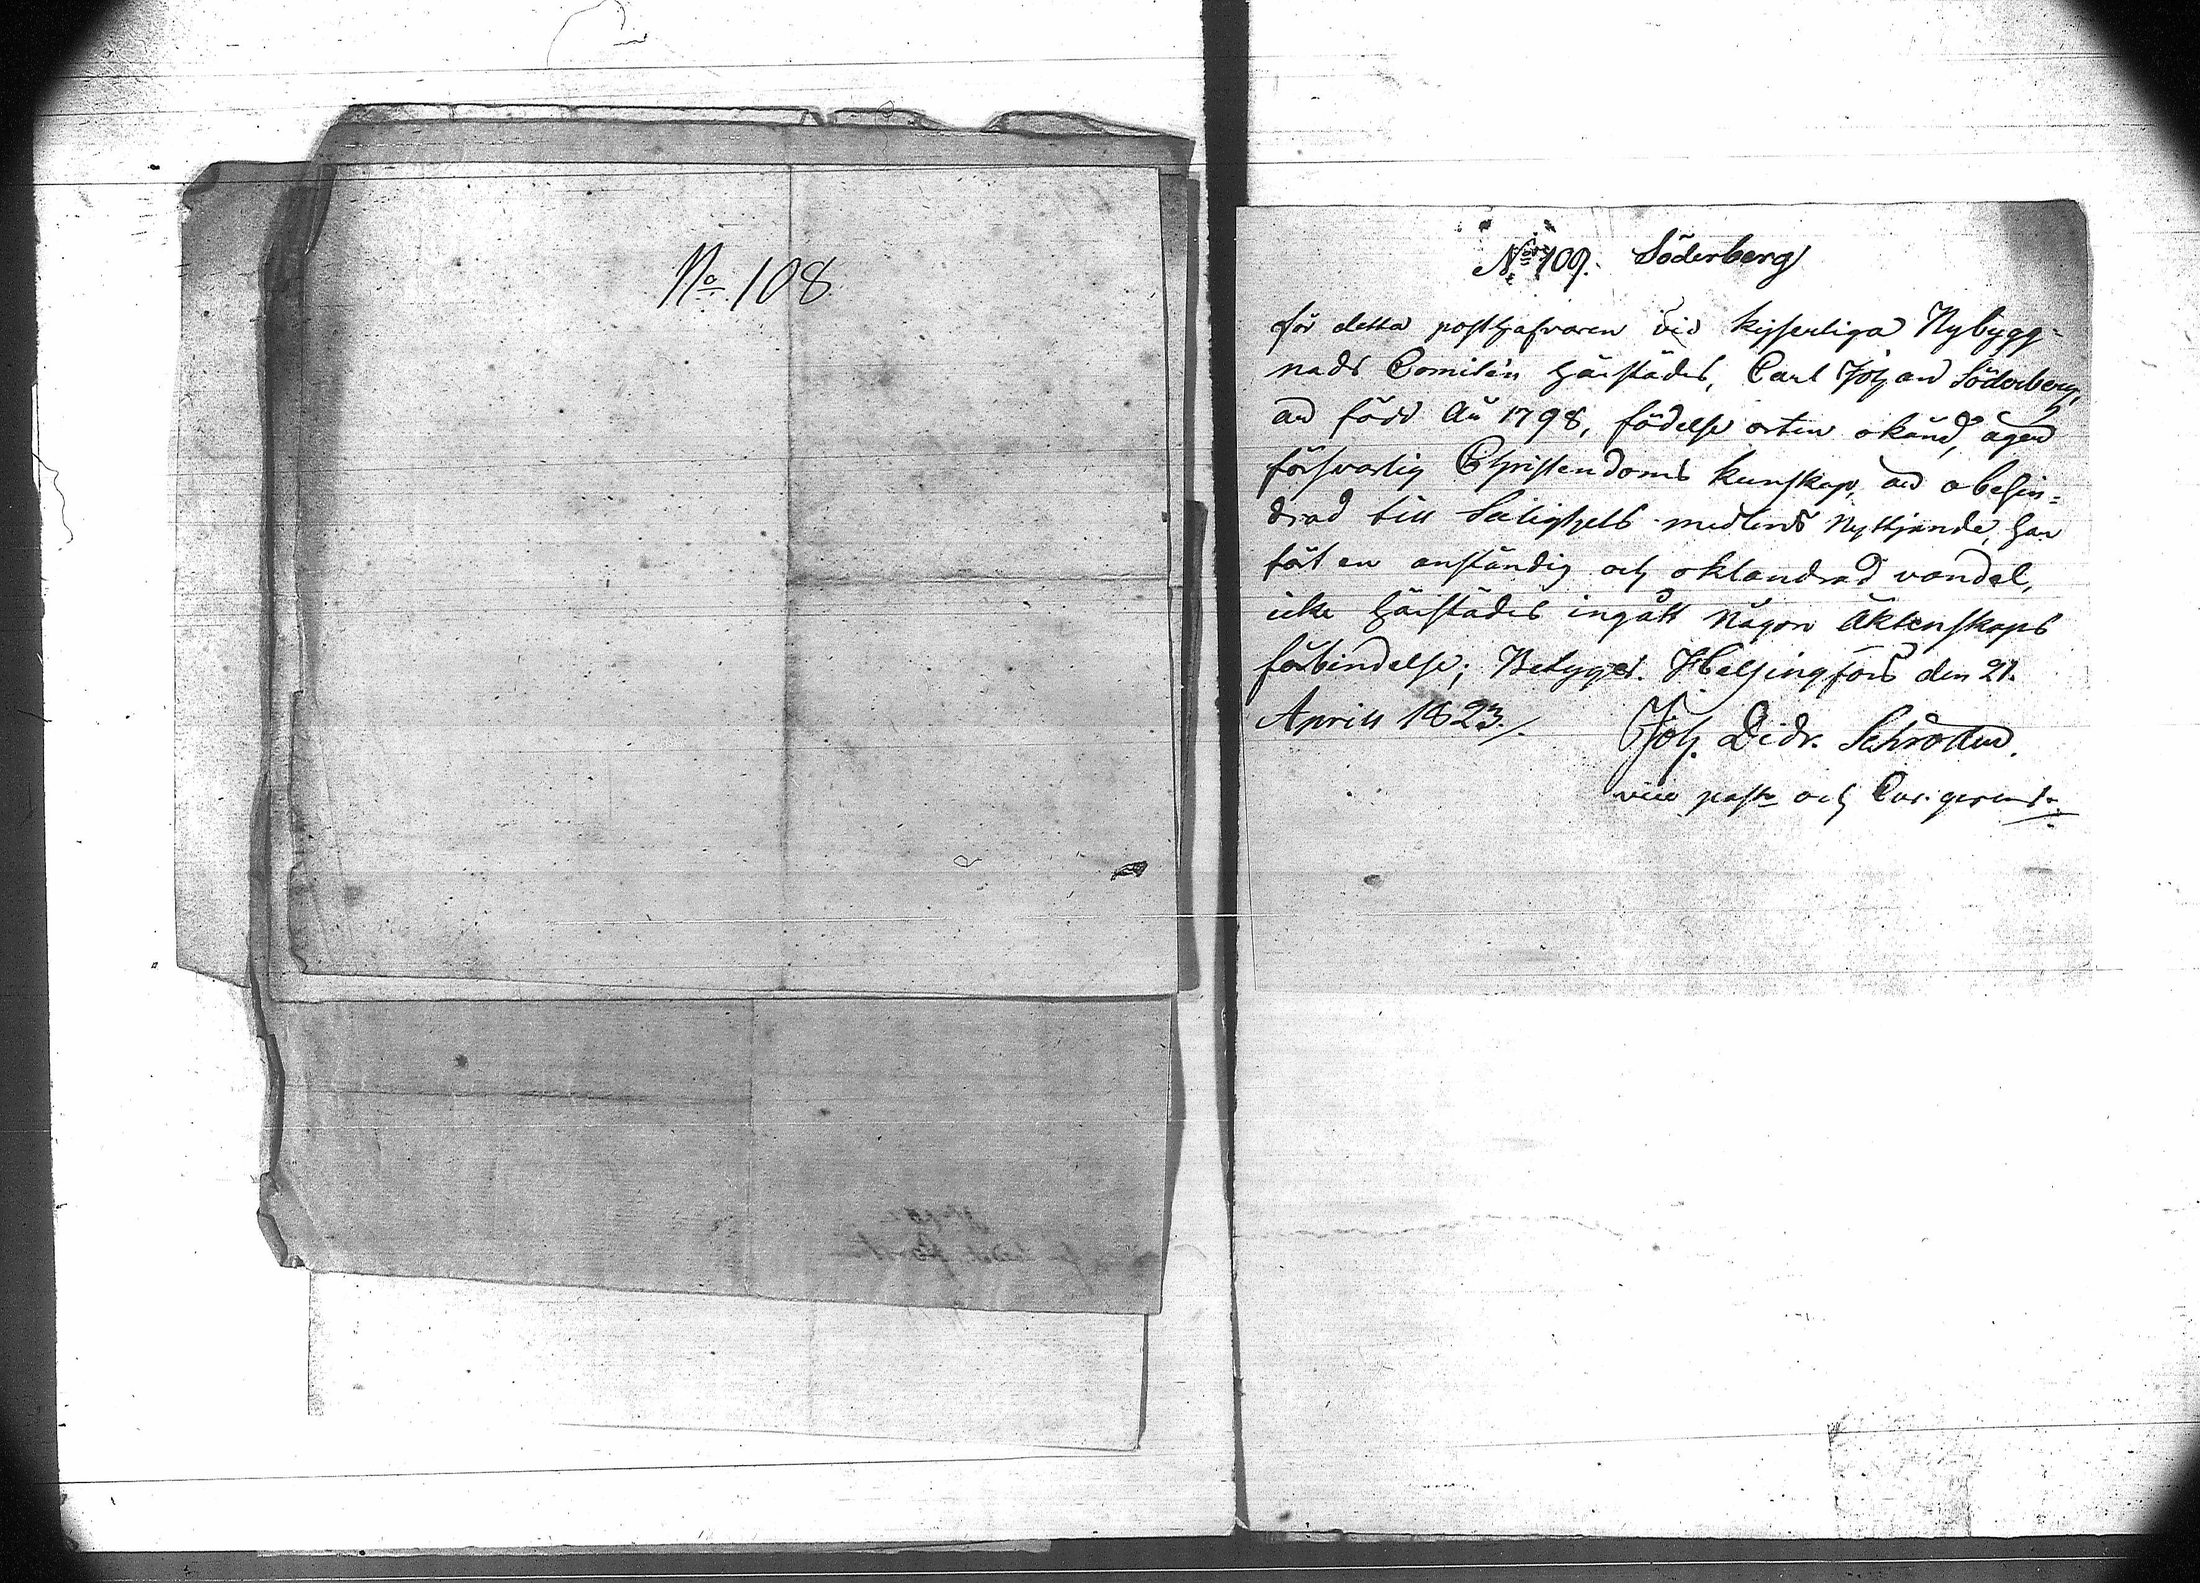 No 108.
No 109. Söderberg
för detta posthafvaren vid kejserliga Nybygg-
nads Comitén härstädes, Carl Johan Söderberg,
är född År 1798, födelse orten okänd, äger
försvarlig Christendoms kunskap, är obehin-
drad till Salighets medlens Nyttjande, har
fört en anständig och oklandrad vandel,
icke härstädes ingått någon Äktenskaps
förbindelse; Betygar. Helsingfors den 21.
Aprill 1823./.
Joh. Didr. Schroder.
vice past. och